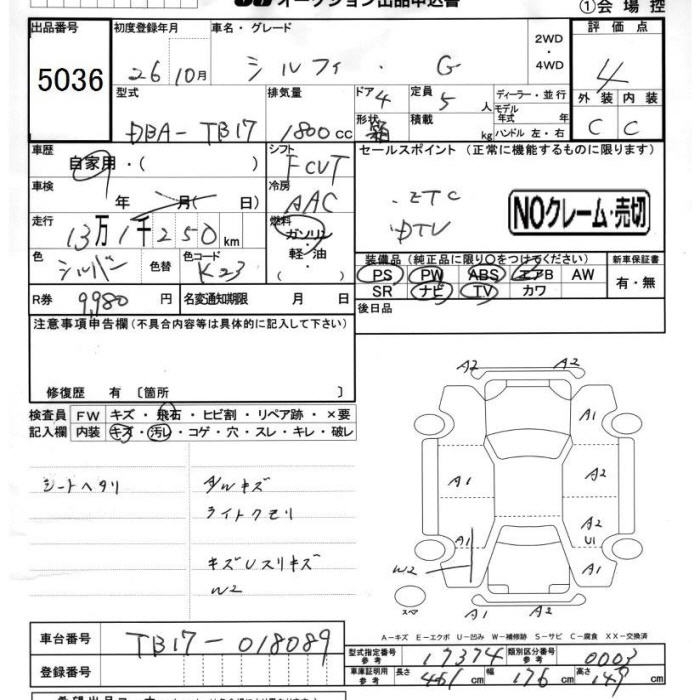 オークション出品申込書
①会場控
出品番号
5036
初度登録年月
26 10月
車名・グレード
シルフィ・G
2WD
・
4WD
評価点
4
外装 内装
C C
型式
DBA-TB17
排気量
1800cc
ドア 4
形状 箱
定員 5 人
積載 kg
ディーラー・並行
モデル年式 年
ハンドル 左・右
車歴
自家用・( )
シフト
FCVT
セールスポイント (正常に機能するものに限ります)
・ETC
・DTV
NOクレーム・売切
車検
年 月( 日)
冷房
AAC
走行
13万1千250km
燃料
ガソリン
軽・油
色
シルバー
色替
色コード
K23
装備品 (純正品に限り○をつけてください)
PS PW ABS エアB AW
SR ナビ TV カワ
新車保証書
有・無
R券 9,980 円
名変通知期限 月 日
後日品
注意事項申告欄 (不具合内容等は具体的に記入して下さい)
修復歴 有 〔箇所 〕
検査員記入欄
FW キズ・飛石・ヒビ割・リペア跡・×要
内装 キズ・汚レ・コゲ・穴・スレ・キレ・破レ
シートヘタリ
A/Wキズ
ライトクモリ
キズUスリキズ
W2
A2
A2
A1
A1
A2
A1
A2
U1
W2
A1
A2
スペア
A-キズ E-エクボ U-凹み W-補修跡 S-サビ C-腐食 XX-交換済
車台番号
TB17-018089
登録番号
型式指定番号 参考 17374
類別区分番号 参考 0003
車庫証明用 参考 長さ 461 cm 幅 176 cm 高さ 149 cm